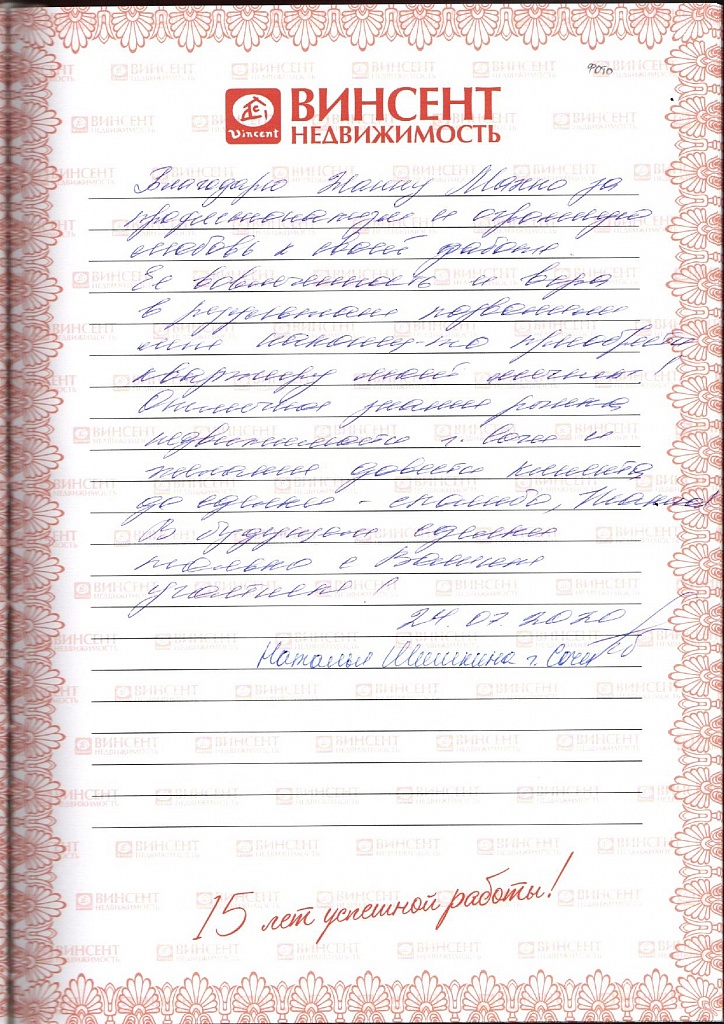 фото
Vincent
ВИНСЕНТ
НЕДВИЖИМОСТЬ
Благодарю Жанну Махно за
профессионализм и огромную
любовь к своей работе.
Её вовлеченность и вера
в результат позволили
мне наконец-то приобрести
квартиру моей мечты.
Отличное знание рынка
недвижимости г. Сочи и
желание довести клиента
до сделки - спасибо, Жанна!
В будущем сделки
только с Вашим
участием!
24.07.2020
Наталья Шишкина г. Сочи
15 лет успешной работы!